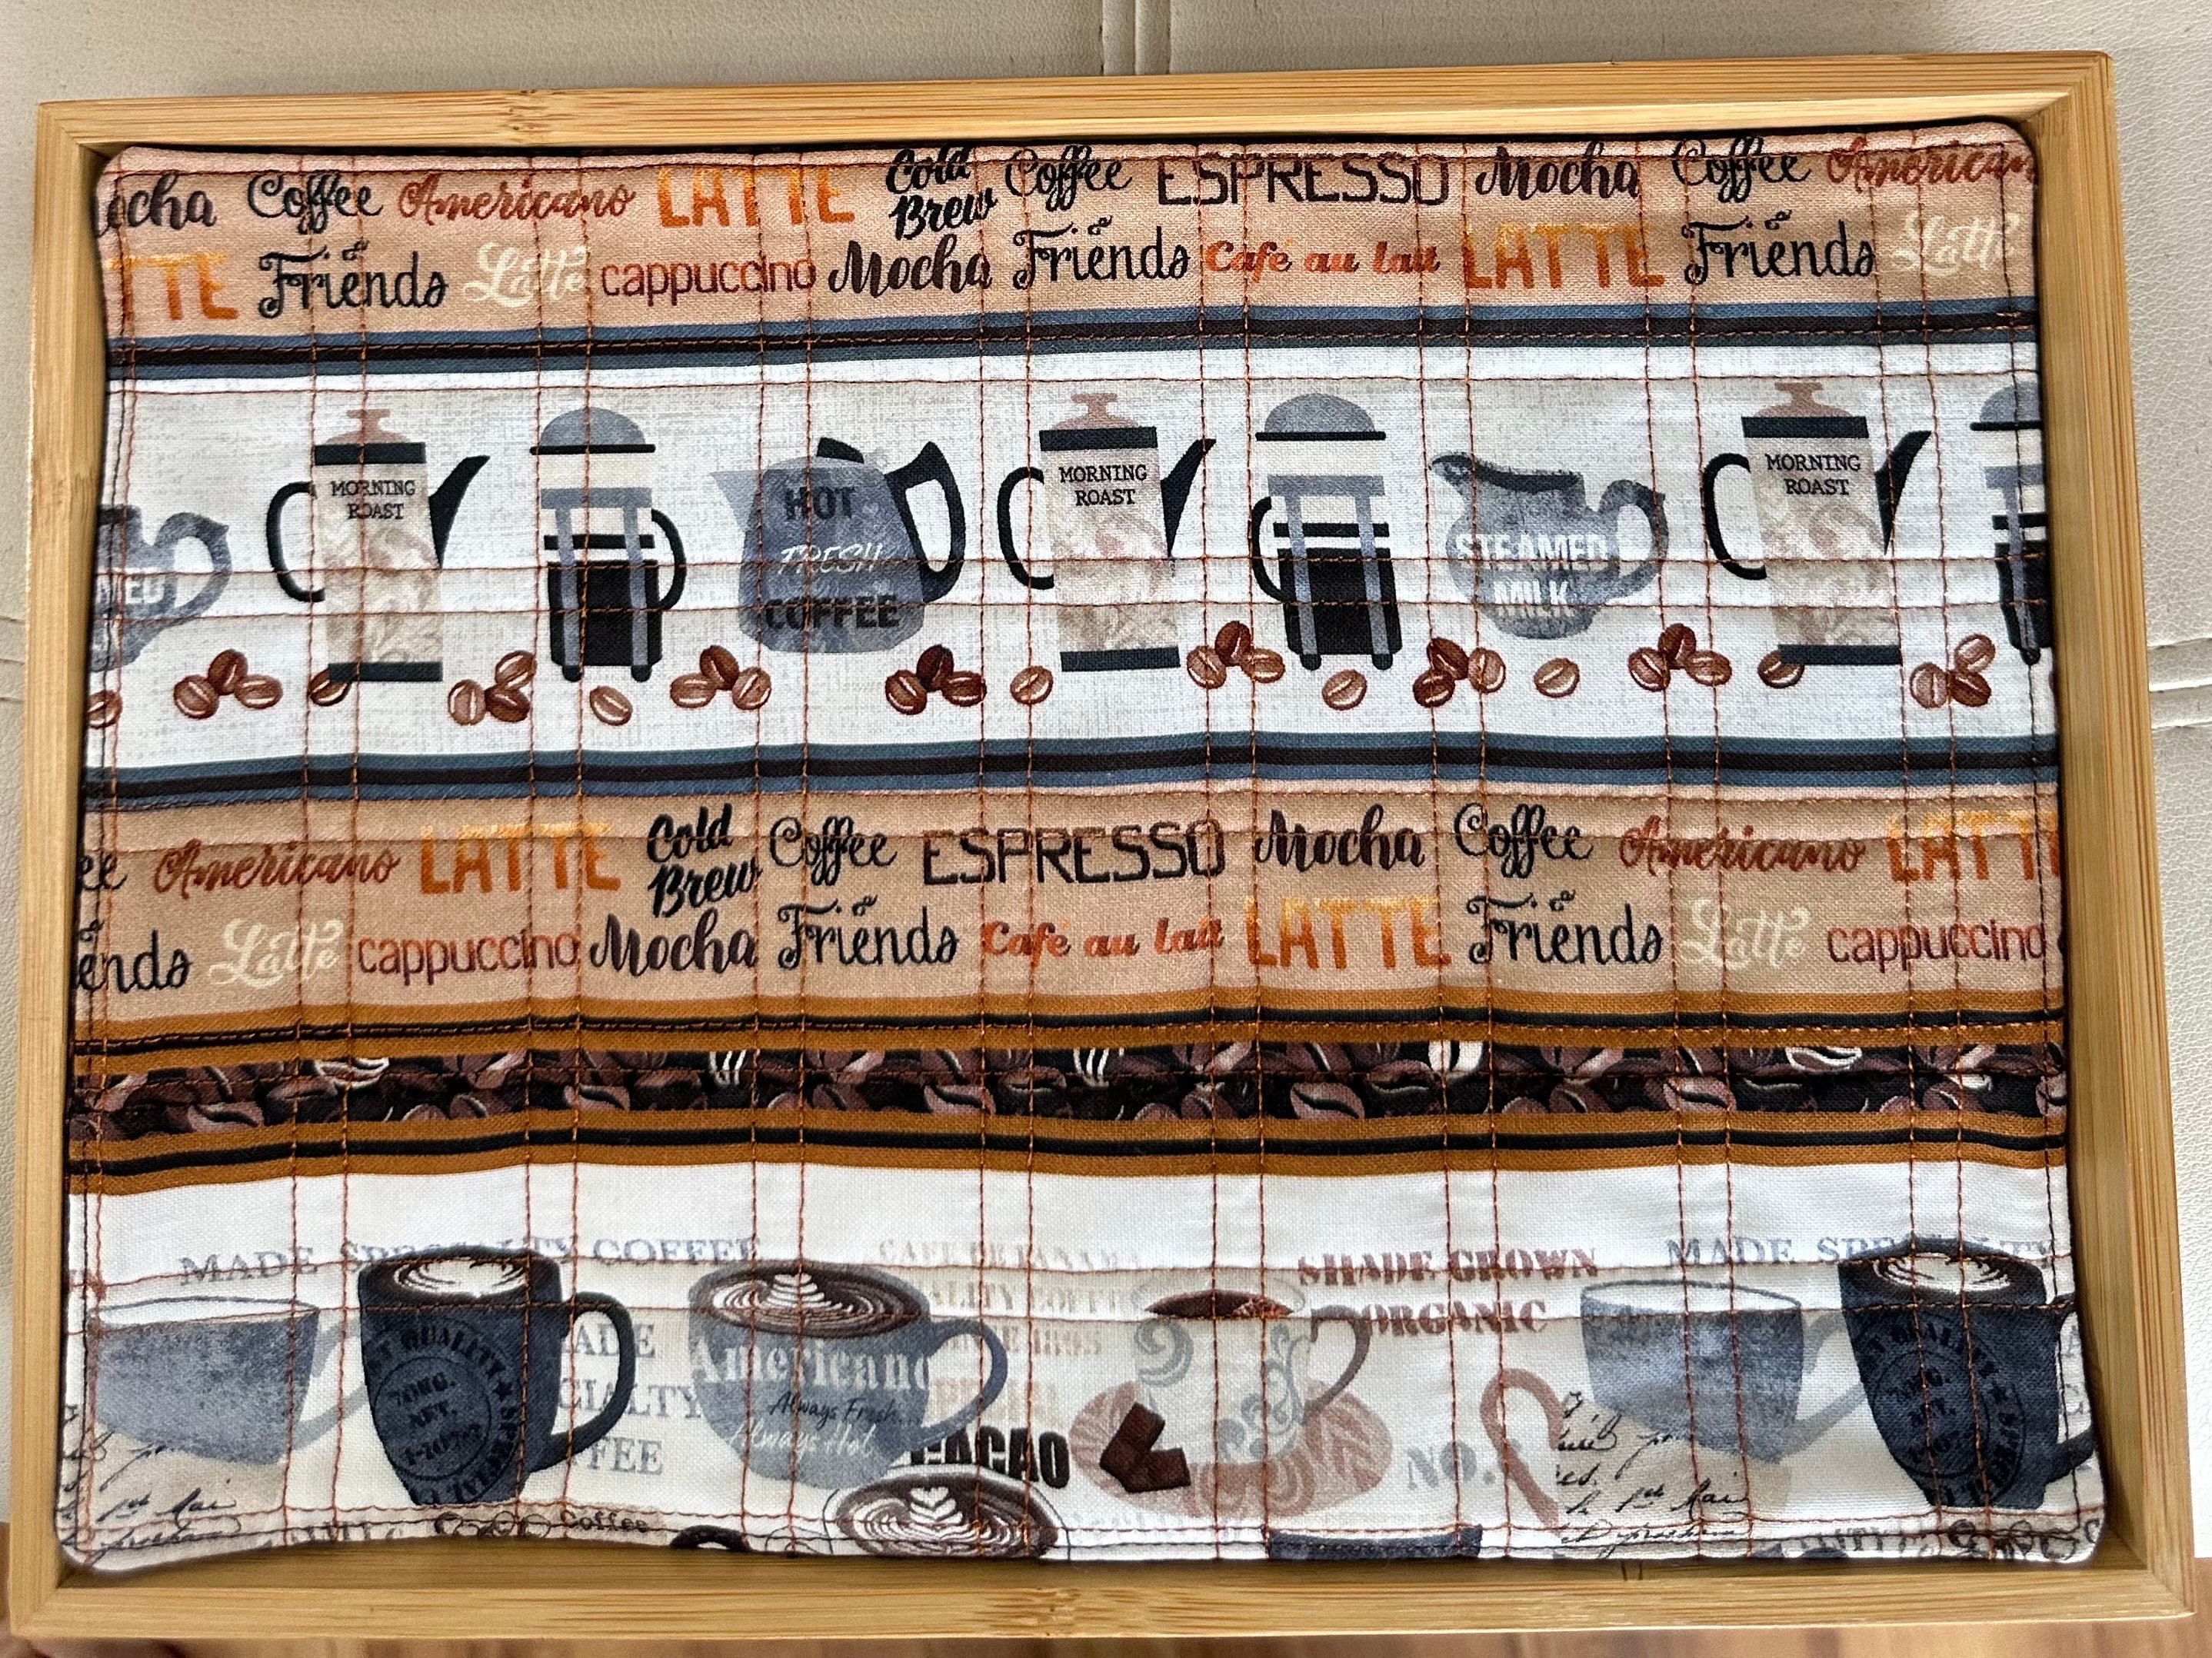 Mocha Coffee Americano LATTE Cold Brew Coffee ESPRESSO Mocha Coffee American
TTE Friends Latte cappuccino Mocha Friends Café au lait LATTE Friends Latte
MORNING
ROAST
HOT
FRESH
COFFEE
MORNING
ROAST
STEAMED
MILK
MORNING
ROAST
ee Americano LATTE Cold Brew Coffee ESPRESSO Mocha Coffee Americano LATT
ends Latte cappuccino Mocha Friends Café au lait LATTE Friends Latte cappuccino
MADE SPECIALTY COFFEE
SHADE GROWN
ORGANIC
MADE SPECIALTY
QUALITY
70KG.
NET.
ADE
CIALTY
FFEE
Americano
Always Fresh
Always Hot
CACAO
NO.
Coffee